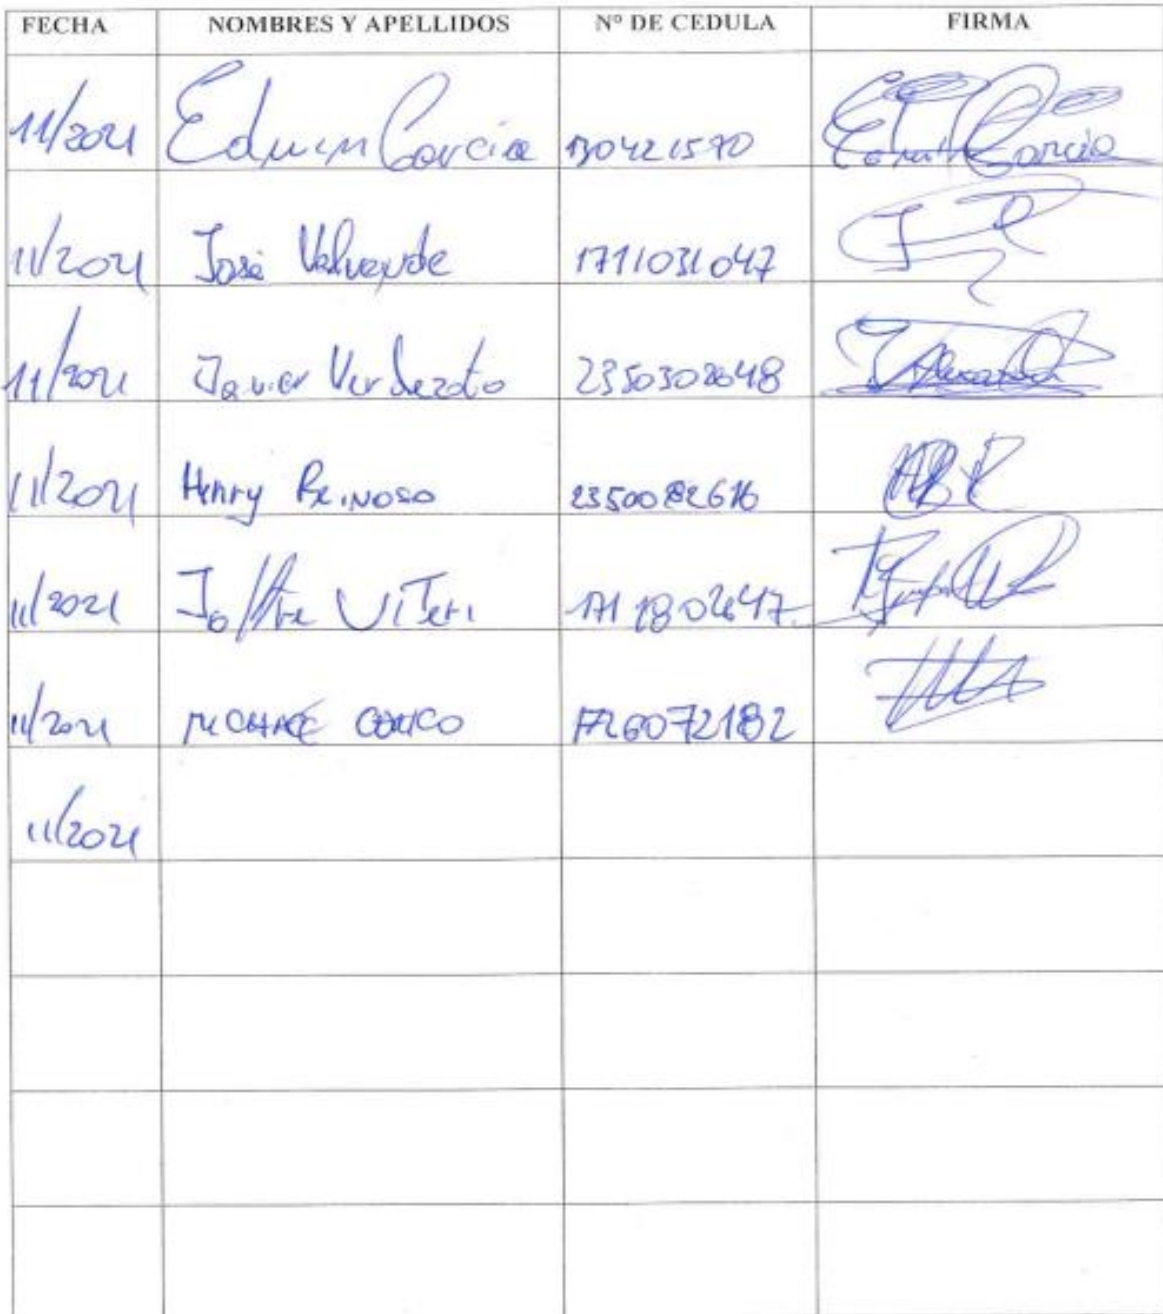 FECHA NOMBRES Y APELLIDOS Nº DE CEDULA FIRMA
11/2021 Edwin Garcia 130421590 Garcia
11/2021 José Valverde 1711031047
11/2021 Javier Verdezoto 2350302648
11/2021 Henry Reinoso 2350082616
11/2021 Joffre Viteri 1711802647
11/2021 1726072182
11/2021